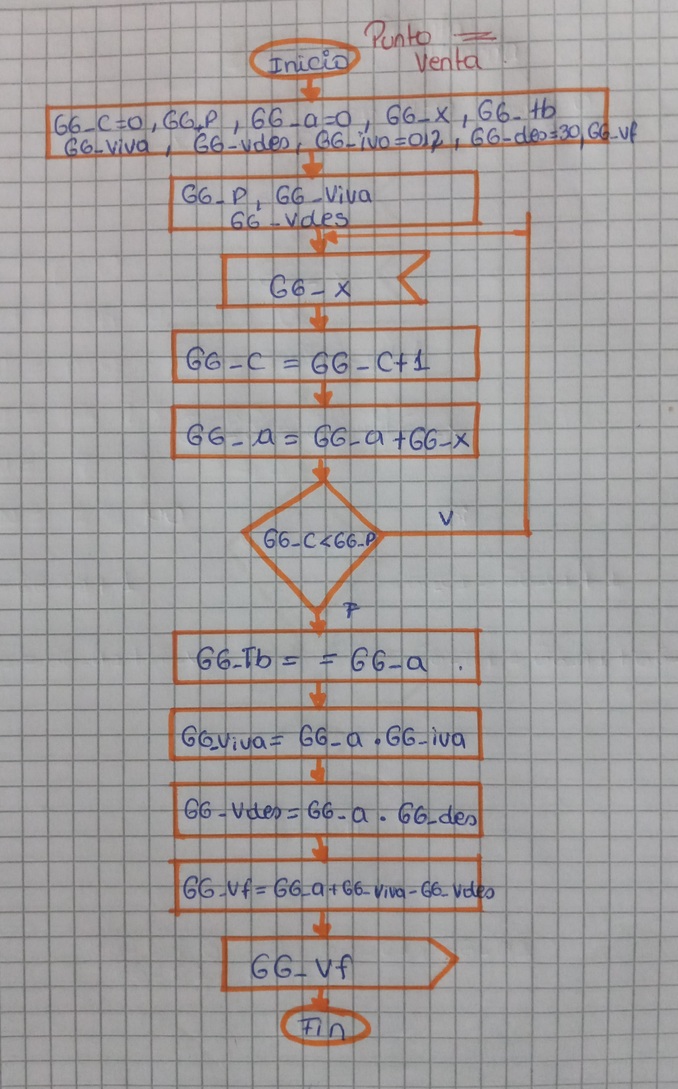 Punto
Inicio
Venta
GG_C=0, GG_P, GG_a=0, GG_X, GG_tb
GG_viva, GG_vdes, GG_iva=0,12, GG_des=30, GG_vf
GG_P, GG_Viva
GG_Vdes
GG_X
GG_C = GG_C+1
GG_a = GG_a+GG_X
GG_C<GG_P
V
F
GG_Tb = = GG_a .
GG_viva= GG_a . GG_iva
GG_Vdes=GG_a . GG_des
GG_Vf=GG_a+GG_viva-GG_Vdes
GG_Vf
Fin